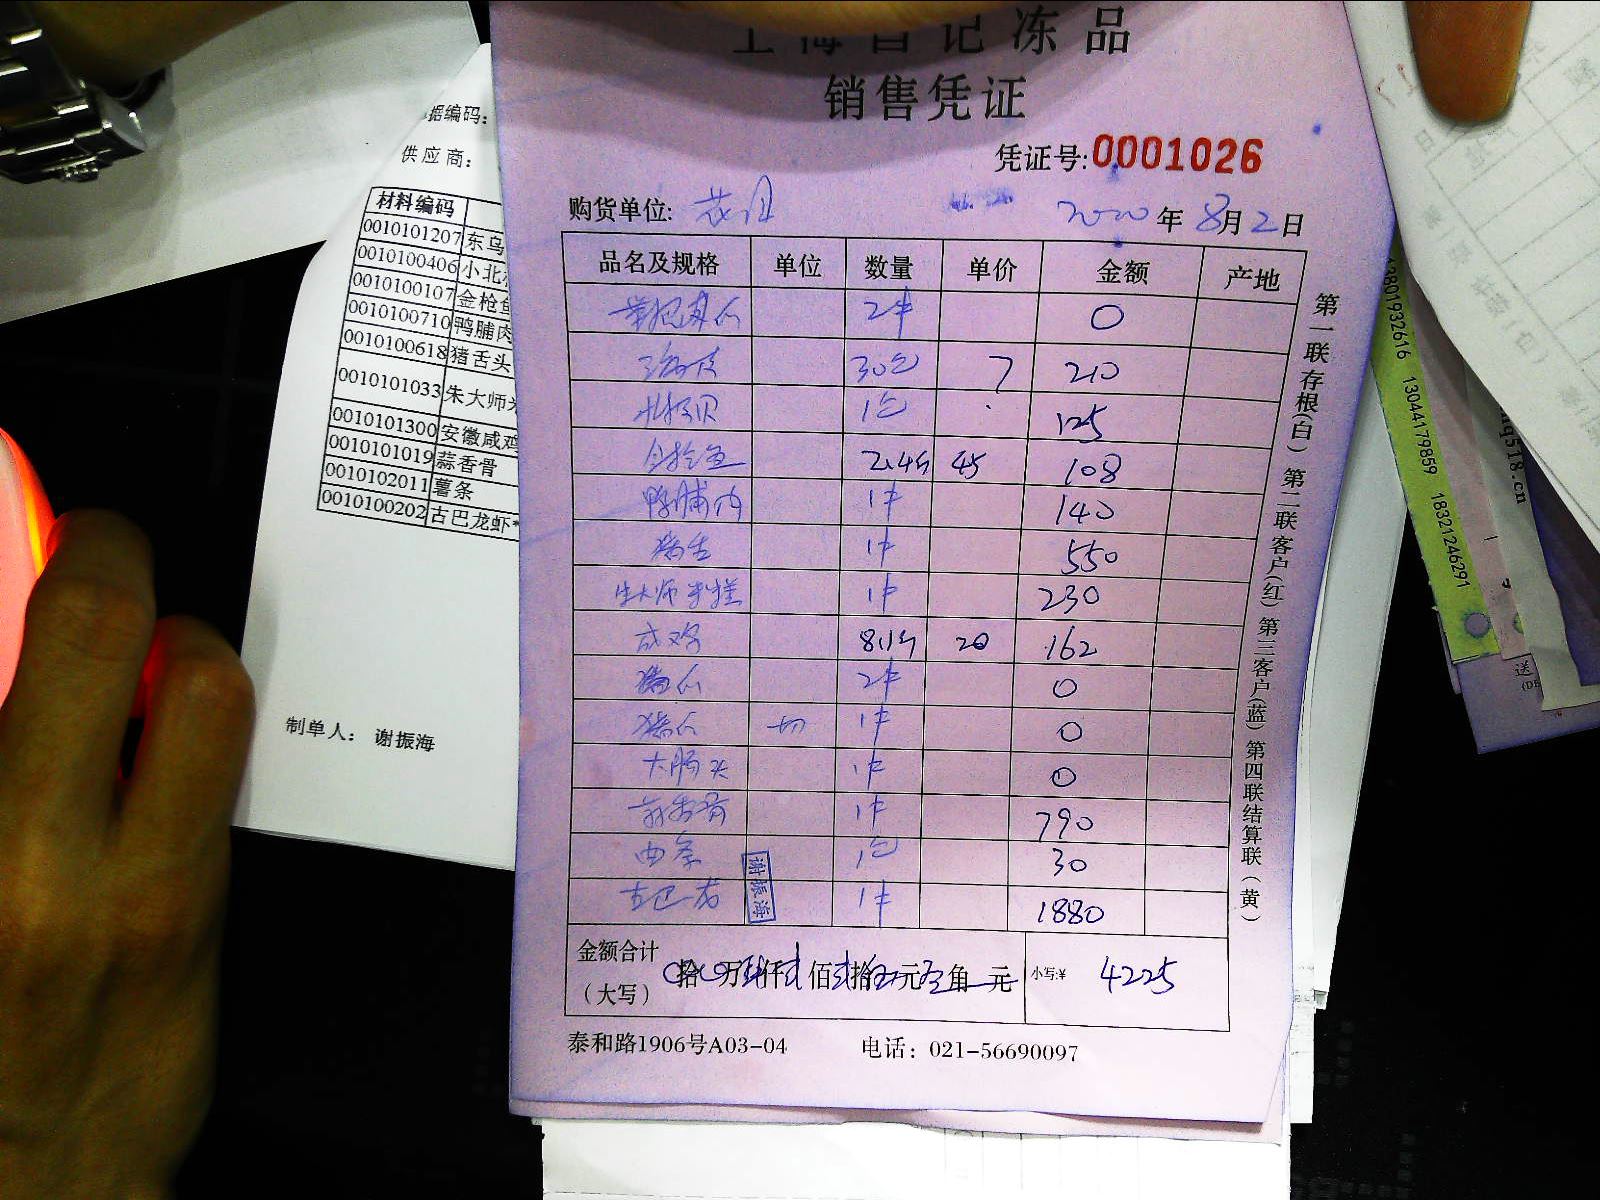 上海吕记冻品
销售凭证
凭证号:0001026
购货单位: 2020年8月2日
品名及规格 单位 数量 单价 金额 产地
2件 0
30包 7 210
北极贝 1包 125
金枪鱼 2.4斤 45 108
鸭脯肉 1件 140
猪舌 1件 550
朱大师米糕 1件 230
咸鸡 8.1斤 20 162
2件 0
1件 0
大肠头 1件 0
蒜香骨 1件 790
1包 30
古巴龙 1件 1880
谢振海
金额合计
(大写) 拾 万 仟 佰 拾 元 角 元 小写:¥ 4225
泰和路1906号A03-04 电话: 021-56690097
第一联存根(白) 第二联客户(红) 第三客户(蓝) 第四联结算联(黄)
据编码:
供应商:
材料编码
0010101207 东乌
0010100406 小北
0010100107 金枪鱼
0010100710 鸭脯肉
0010100618 猪舌头
0010101033 朱大师米
0010101300 安徽咸鸡
0010101019 蒜香骨
0010102011 薯条
0010100202 古巴龙虾*
制单人: 谢振海
13801932616 13044179859 18321246291
q518.cn
送